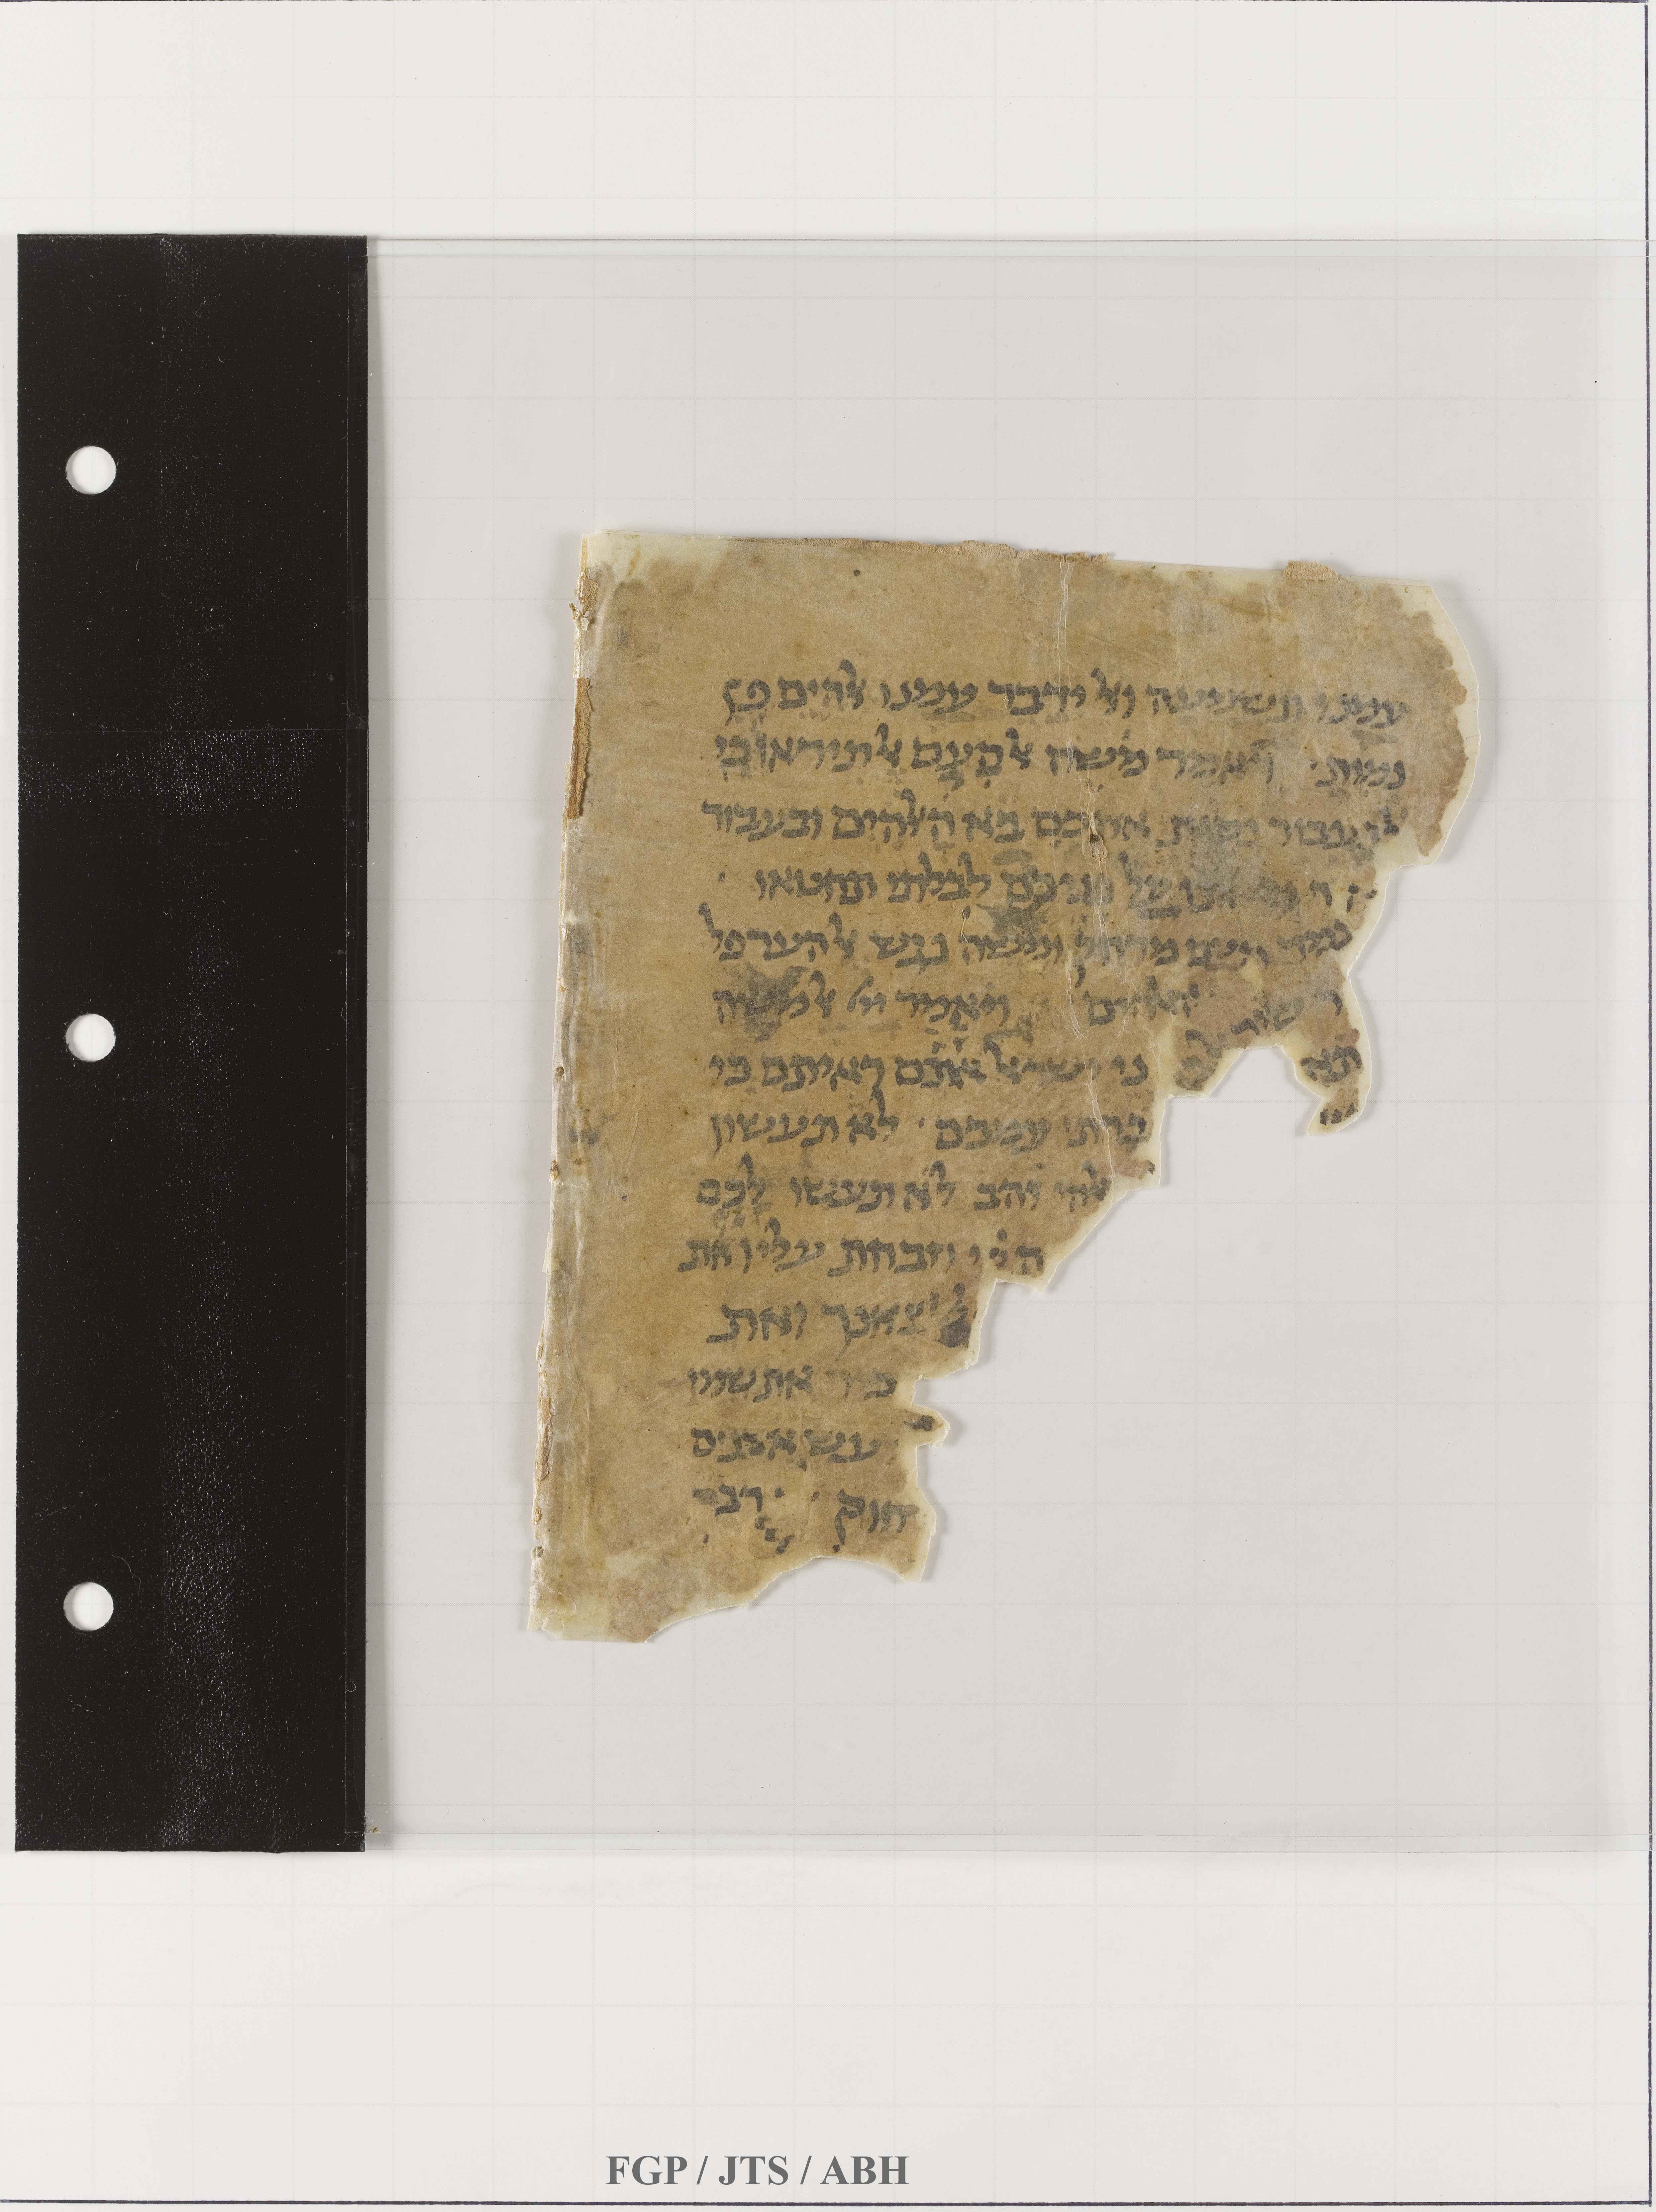 עמנו ונשמעה ואל ידבר עמנו אלהים פן
נמות ויאמר משה אל העם אל תיראו כי
לבעבור נסות אתכם בא האלהים ובעבור
על פניכם לבלתי תחטאו
העם מרחק ומשה נגש אל הערפל
אשר האלהים ויאמר יי אל משה
תא בני ישראל אתם ראיתם כי
ברתי עמכם לא תעשון
אלהי זהב לא תעשו לכם
וזבחת עליו את
צאנך ואת
כיר את שמי
אבנים
FGP / JTS / ABH